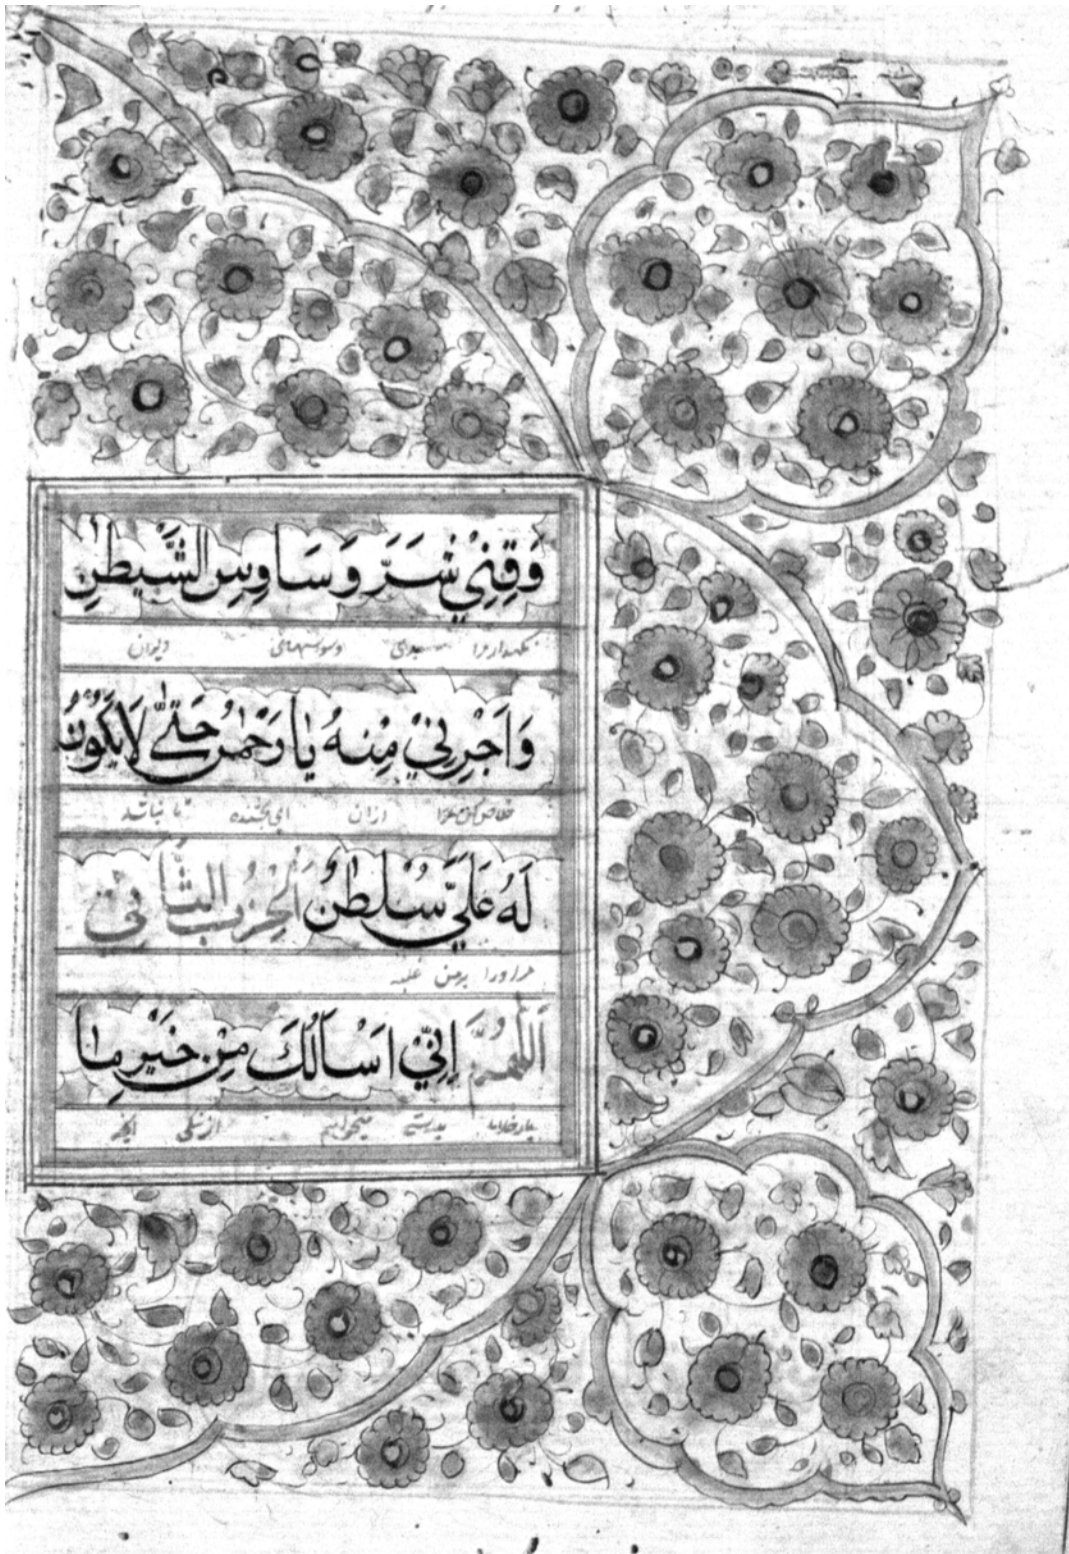 وَقِنِيْ شَرَّ وَسَاوِسِ الشَّيْطٰنِ
نگهدار مرا وسوسهای دیوان
وَاَجِرْنِيْ مِنْهُ يَا رَحْمٰنُ حَتّٰى لَا يَكُوْنَ
ازان ای بخشنده تا نباشد
لَهُ عَلَيَّ سُلْطٰنٌ اَلْحِزْبُ الثَّانِيْ
مر او را بر من غلبه
اَللّٰهُمَّ اِنِّيْ اَسْاَلُكَ مِنْ خَيْرِ مَا
بار خدایا بدرستی میخواهم از نیکی